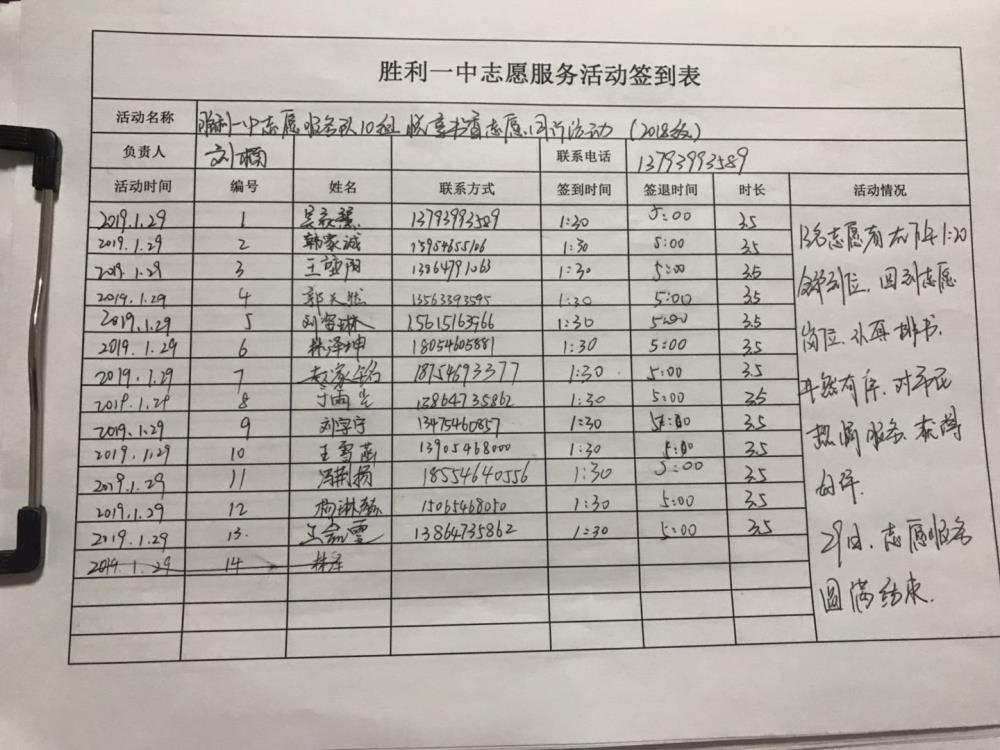 胜利一中志愿服务活动签到表
活动名称 胜利一中志愿服务队10组 书香志愿 活动 (2018级)
负责人 刘 联系电话 13793993589
活动时间 编号 姓名 联系方式 签到时间 签退时间 时长 活动情况
2019.1.29 1 13793993589 1:30 5:00 3.5
2019.1.29 2 韩家诚 13954655106 1:30 5:00 3.5
2019.1.29 3 王 13864791063 1:30 5:00 3.5
2019.1.29 4 郭天然 13563393595 1:30 5:00 3.5
2019.1.29 5 刘 琳 15615163966 1:30 5:00 3.5
2019.1.29 6 林泽坤 18054605881 1:30 5:00 3.5
2019.1.29 7 18754693377 1:30 5:00 3.5
2019.1.29 8 丁雨 13864735862 1:30 5:00 3.5
2019.1.29 9 刘宇宁 13475460857 1:30 5:00 3.5
2019.1.29 10 王雪 13905468000 1:30 5:00 3.5
2019.1.29 11 18554640556 1:30 5:00 3.5
2019.1.29 12 杨琳 15065468050 1:30 5:00 3.5
2019.1.29 13. 王 13864735862 1:30 5:00 3.5
2019.1.29 14 林泽
13名志愿者在下午1:30
全部到位, 回到志愿
岗位, 认真排书,
井然有序, 对市民
热情服务, 获得
好评.
29日, 志愿服务
圆满结束.